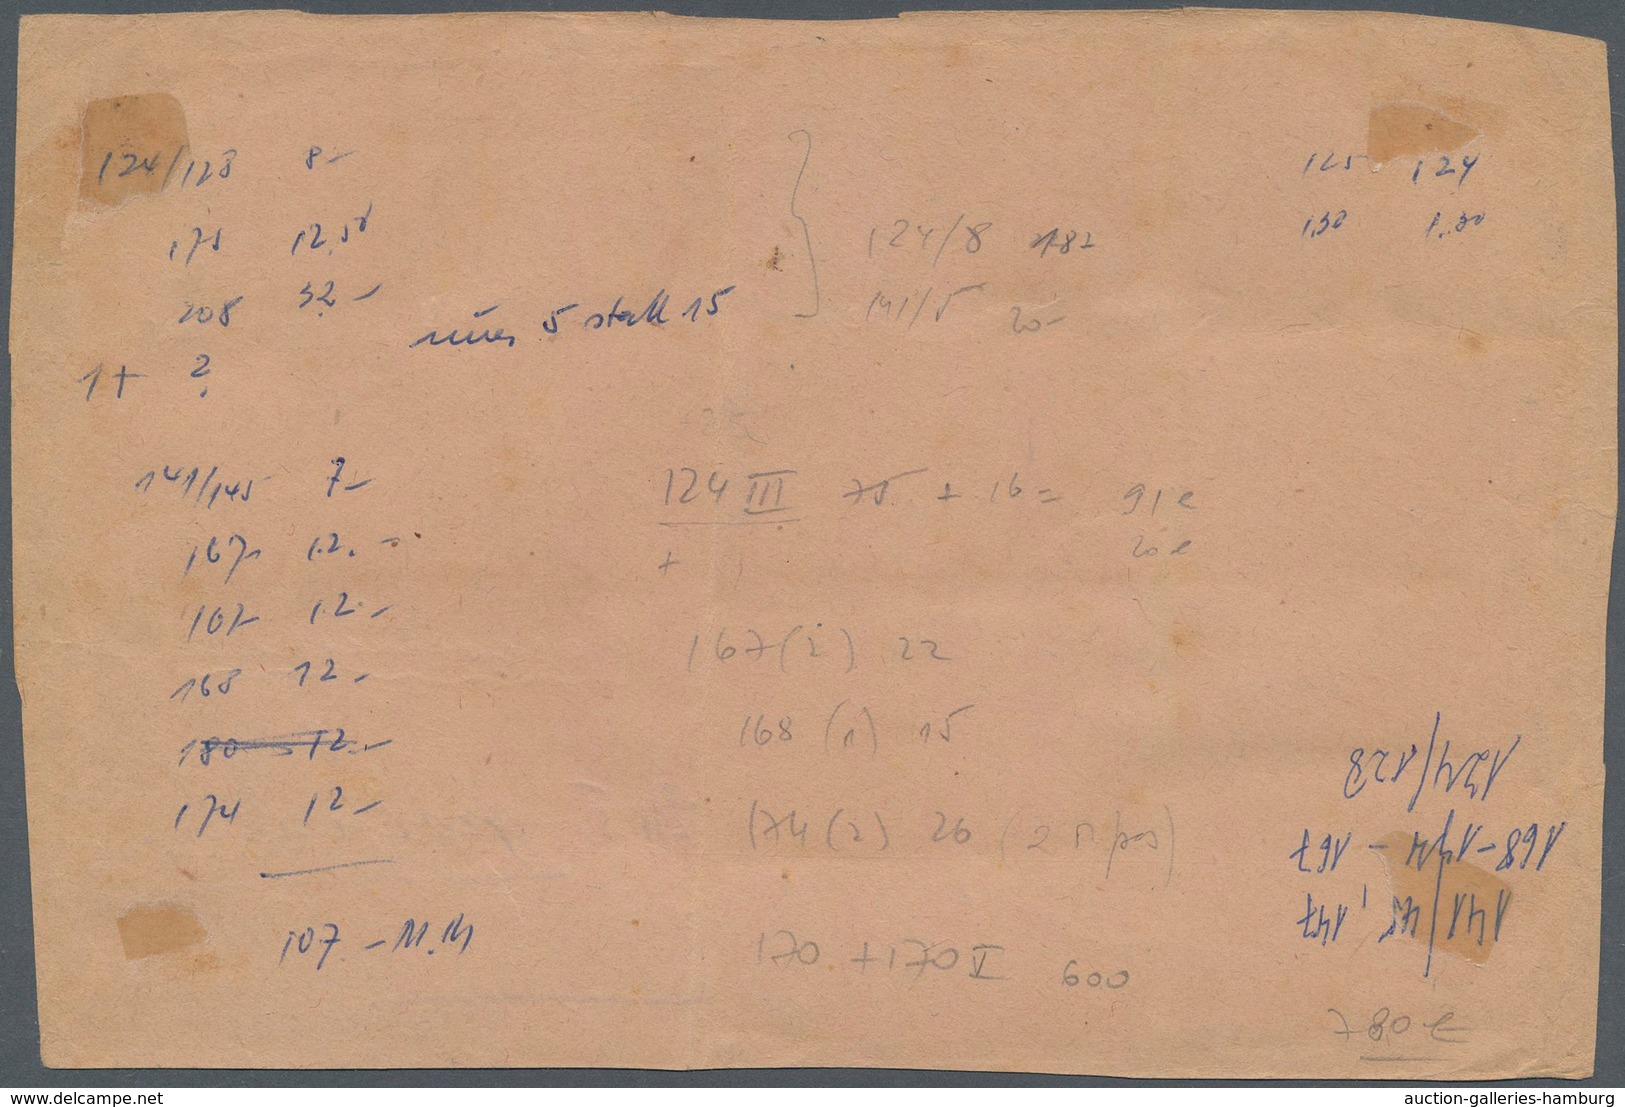 124/128 8-
175 12,50
208 32-
nur 5 statt 15
1+ ?
141/145 7-
167 12.-
167 12.-
168 12.-
180 12.-
174 12-
107.- M.M
124/8 182
141/5 20-
125 124
1,30 1,30
124 III 75 + 16 = 91 €
+ 20 €
167 (2) 22
168 (1) 15
174 (2) 26 (2
170 + 170 V 600
141/45, 147
168-174 - 167
124/128
780 €
www.delcampe.net
auction-galleries-hamburg